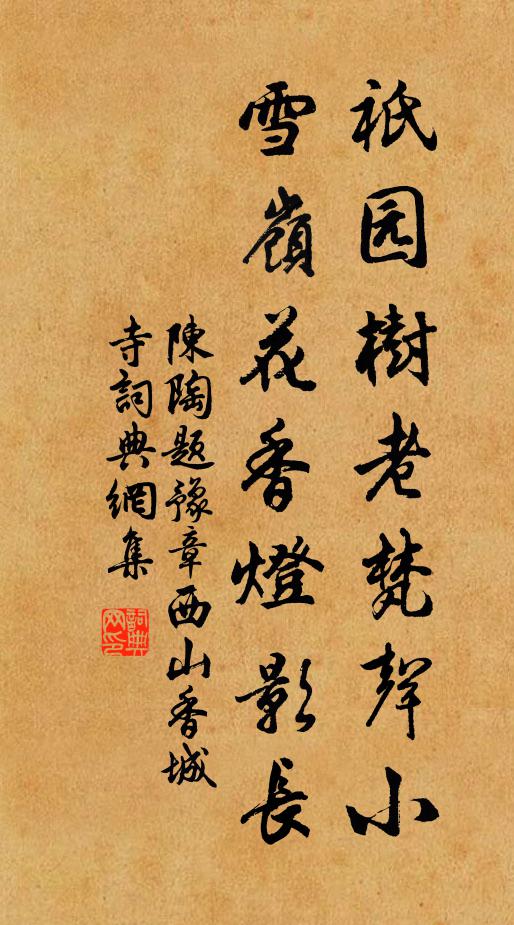 祇园樹老梵聲小
雪嶺花香燈影長
陳陶題豫章西山香城
寺詞典網集
詞典网印